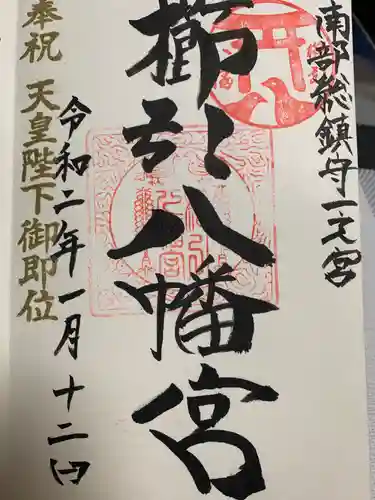 南部総鎮守一之宮
櫛引八幡宮
令和二年一月十二日
奉祝 天皇陛下御即位